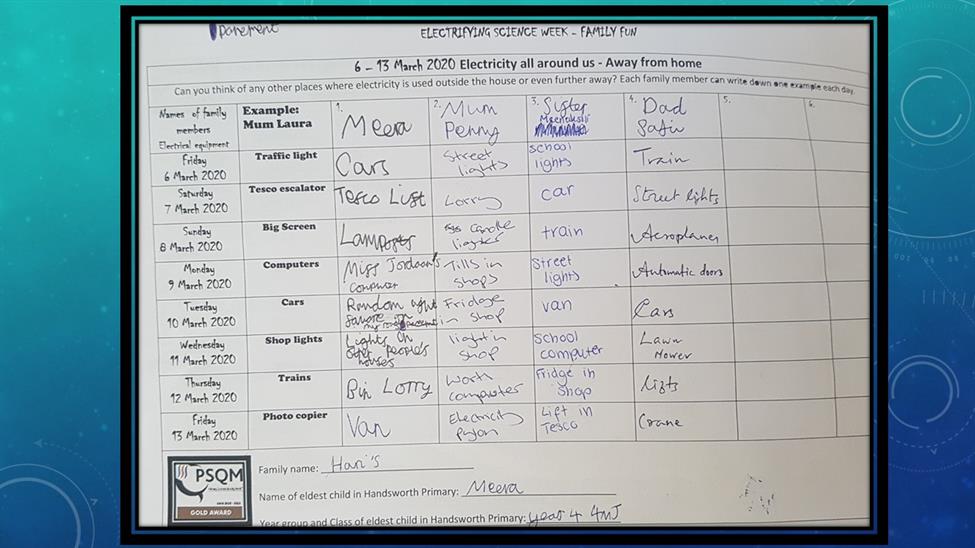 Pavement
ELECTRIFYING SCIENCE WEEK – FAMILY FUN
6 – 13 March 2020 Electricity all around us - Away from home
Can you think of any other places where electricity is used outside the house or even further away? Each family member can write down one example each day.
Names of family
members
Electrical equipment
Example:
Mum Laura
1.
Meera
2. Mum
Penny
3. Sister
Meenakshi
4. Dad
5.
6.
Friday
6 March 2020
Traffic light
Cars
Street
lights
School
lights
Train
Saturday
7 March 2020
Tesco escalator
Tesco Lift
Lorry
car
Street lights
Sunday
8 March 2020
Big Screen
Lamposts
candle
lighter
train
Aeroplanes
Monday
9 March 2020
Computers
Miss Jordaan's
computer
Tills in
shops
Street
lights
Automatic doors
Tuesday
10 March 2020
Cars
Random light
Square in
my road pavement
Fridge
in shop
van
Cars
Wednesday
11 March 2020
Shop lights
Lights on
other people's
houses
light in
shop
School
computer
Lawn
Mower
Thursday
12 March 2020
Trains
Bin Lorry
Work
computer
Fridge in
shop
lifts
Friday
13 March 2020
Photo copier
Van
Electricity
pylon
Lift in
Tesco
Crane
PSQM
GOLD AWARD
Family name: Hari's
Name of eldest child in Handsworth Primary: Meera
Year group and Class of eldest child in Handsworth Primary: year 4 4MJ